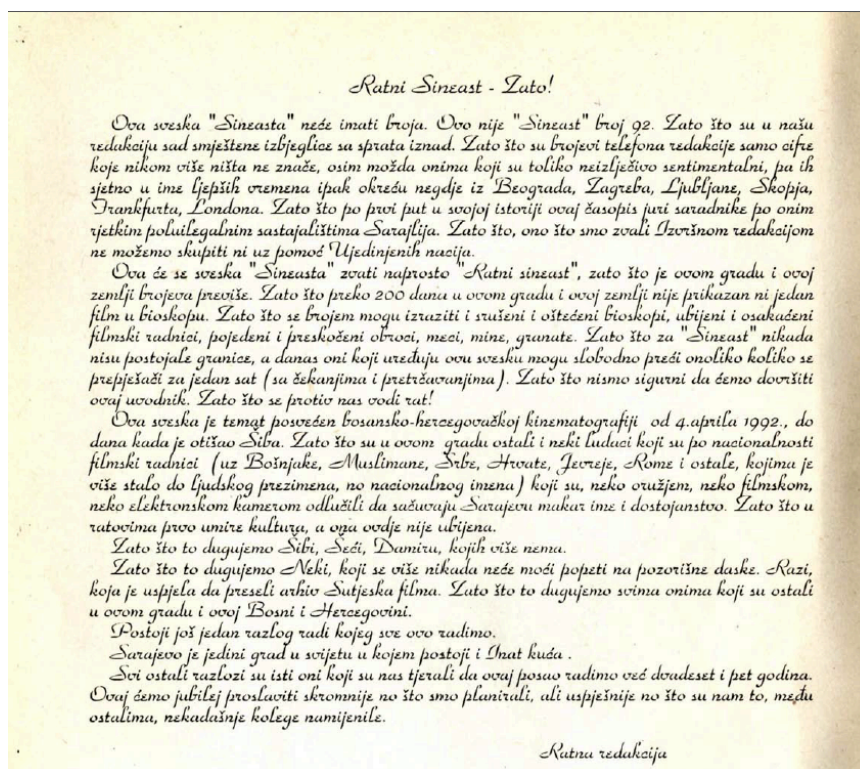 Ratni Sineast - Zato!
Ova sveska "Sineasta" neće imati broja. Ovo nije "Sineast" broj 92. Zato što su u našu
redakciju sad smještene izbjeglice sa sprata iznad. Zato što su brojevi telefona redakcije samo cifre
koje nikom više ništa ne znače, osim možda onima koji su toliko neizlječivo sentimentalni, pa ih
sjetno u ime ljepših vremena ipak okreću negdje iz Beograda, Zagreba, Ljubljane, Skopja,
Frankfurta, Londona. Zato što po prvi put u svojoj istoriji ovaj časopis juri saradnike po onim
rjetkim poluilegalnim sastajalištima Sarajlija. Zato što, ono što smo zvali Izvršnom redakcijom
ne možemo skupiti ni uz pomoć Ujedinjenih nacija.
Ova će se sveska "Sineasta" zvati naprosto "Ratni sineast", zato što je ovom gradu i ovoj
zemlji brojeva previše. Zato što preko 200 dana u ovom gradu i ovoj zemlji nije prikazan ni jedan
film u bioskopu. Zato što se brojem mogu izraziti i srušeni i oštećeni bioskopi, ubijeni i osakaćeni
filmski radnici, pojedeni i preskočeni obroci, meci, mine, granate. Zato što za "Sineast" nikada
nisu postojale granice, a danas oni koji uređuju ovu svesku mogu slobodno preći onoliko koliko se
prepješači za jedan sat (sa čekanjima i pretrčavanjima). Zato što nismo sigurni da ćemo dovršiti
ovaj uvodnik. Zato što se protiv nas vodi rat!
Ova sveska je temat posvećen bosansko-hercegovačkoj kinematografiji od 4.aprila 1992., do
dana kada je otišao Šiba. Zato što su u ovom gradu ostali i neki ludaci koji su po nacionalnosti
filmski radnici (uz Bošnjake, Muslimane, Srbe, Hrvate, Jevreje, Rome i ostale, kojima je
više stalo do ljudskog prezimena, no nacionalnog imena) koji su, neko oružjem, neko filmskom,
neko elektronskom kamerom odlučili da sačuvaju Sarajevu makar ime i dostojanstvo. Zato što u
ratovima prvo umire kultura, a ona ovdje nije ubijena.
Zato što to dugujemo Šibi, Šeći, Damiru, kojih više nema.
Zato što to dugujemo Neki, koji se više nikada neće moći popeti na pozorišne daske. Razi,
koja je uspjela da preseli arhiv Sutjeska filma. Zato što to dugujemo svima onima koji su ostali
u ovom gradu i ovoj Bosni i Hercegovini.
Postoji još jedan razlog radi kojeg sve ovo radimo.
Sarajevo je jedini grad u svijetu u kojem postoji i Inat kuća .
Svi ostali razlozi su isti oni koji su nas tjerali da ovaj posao radimo već dvadeset i pet godina.
Ovaj ćemo jubilej proslaviti skromnije no što smo planirali, ali uspješnije no što su nam to, među
ostalima, nekadašnje kolege namijenile.
Ratna redakcija